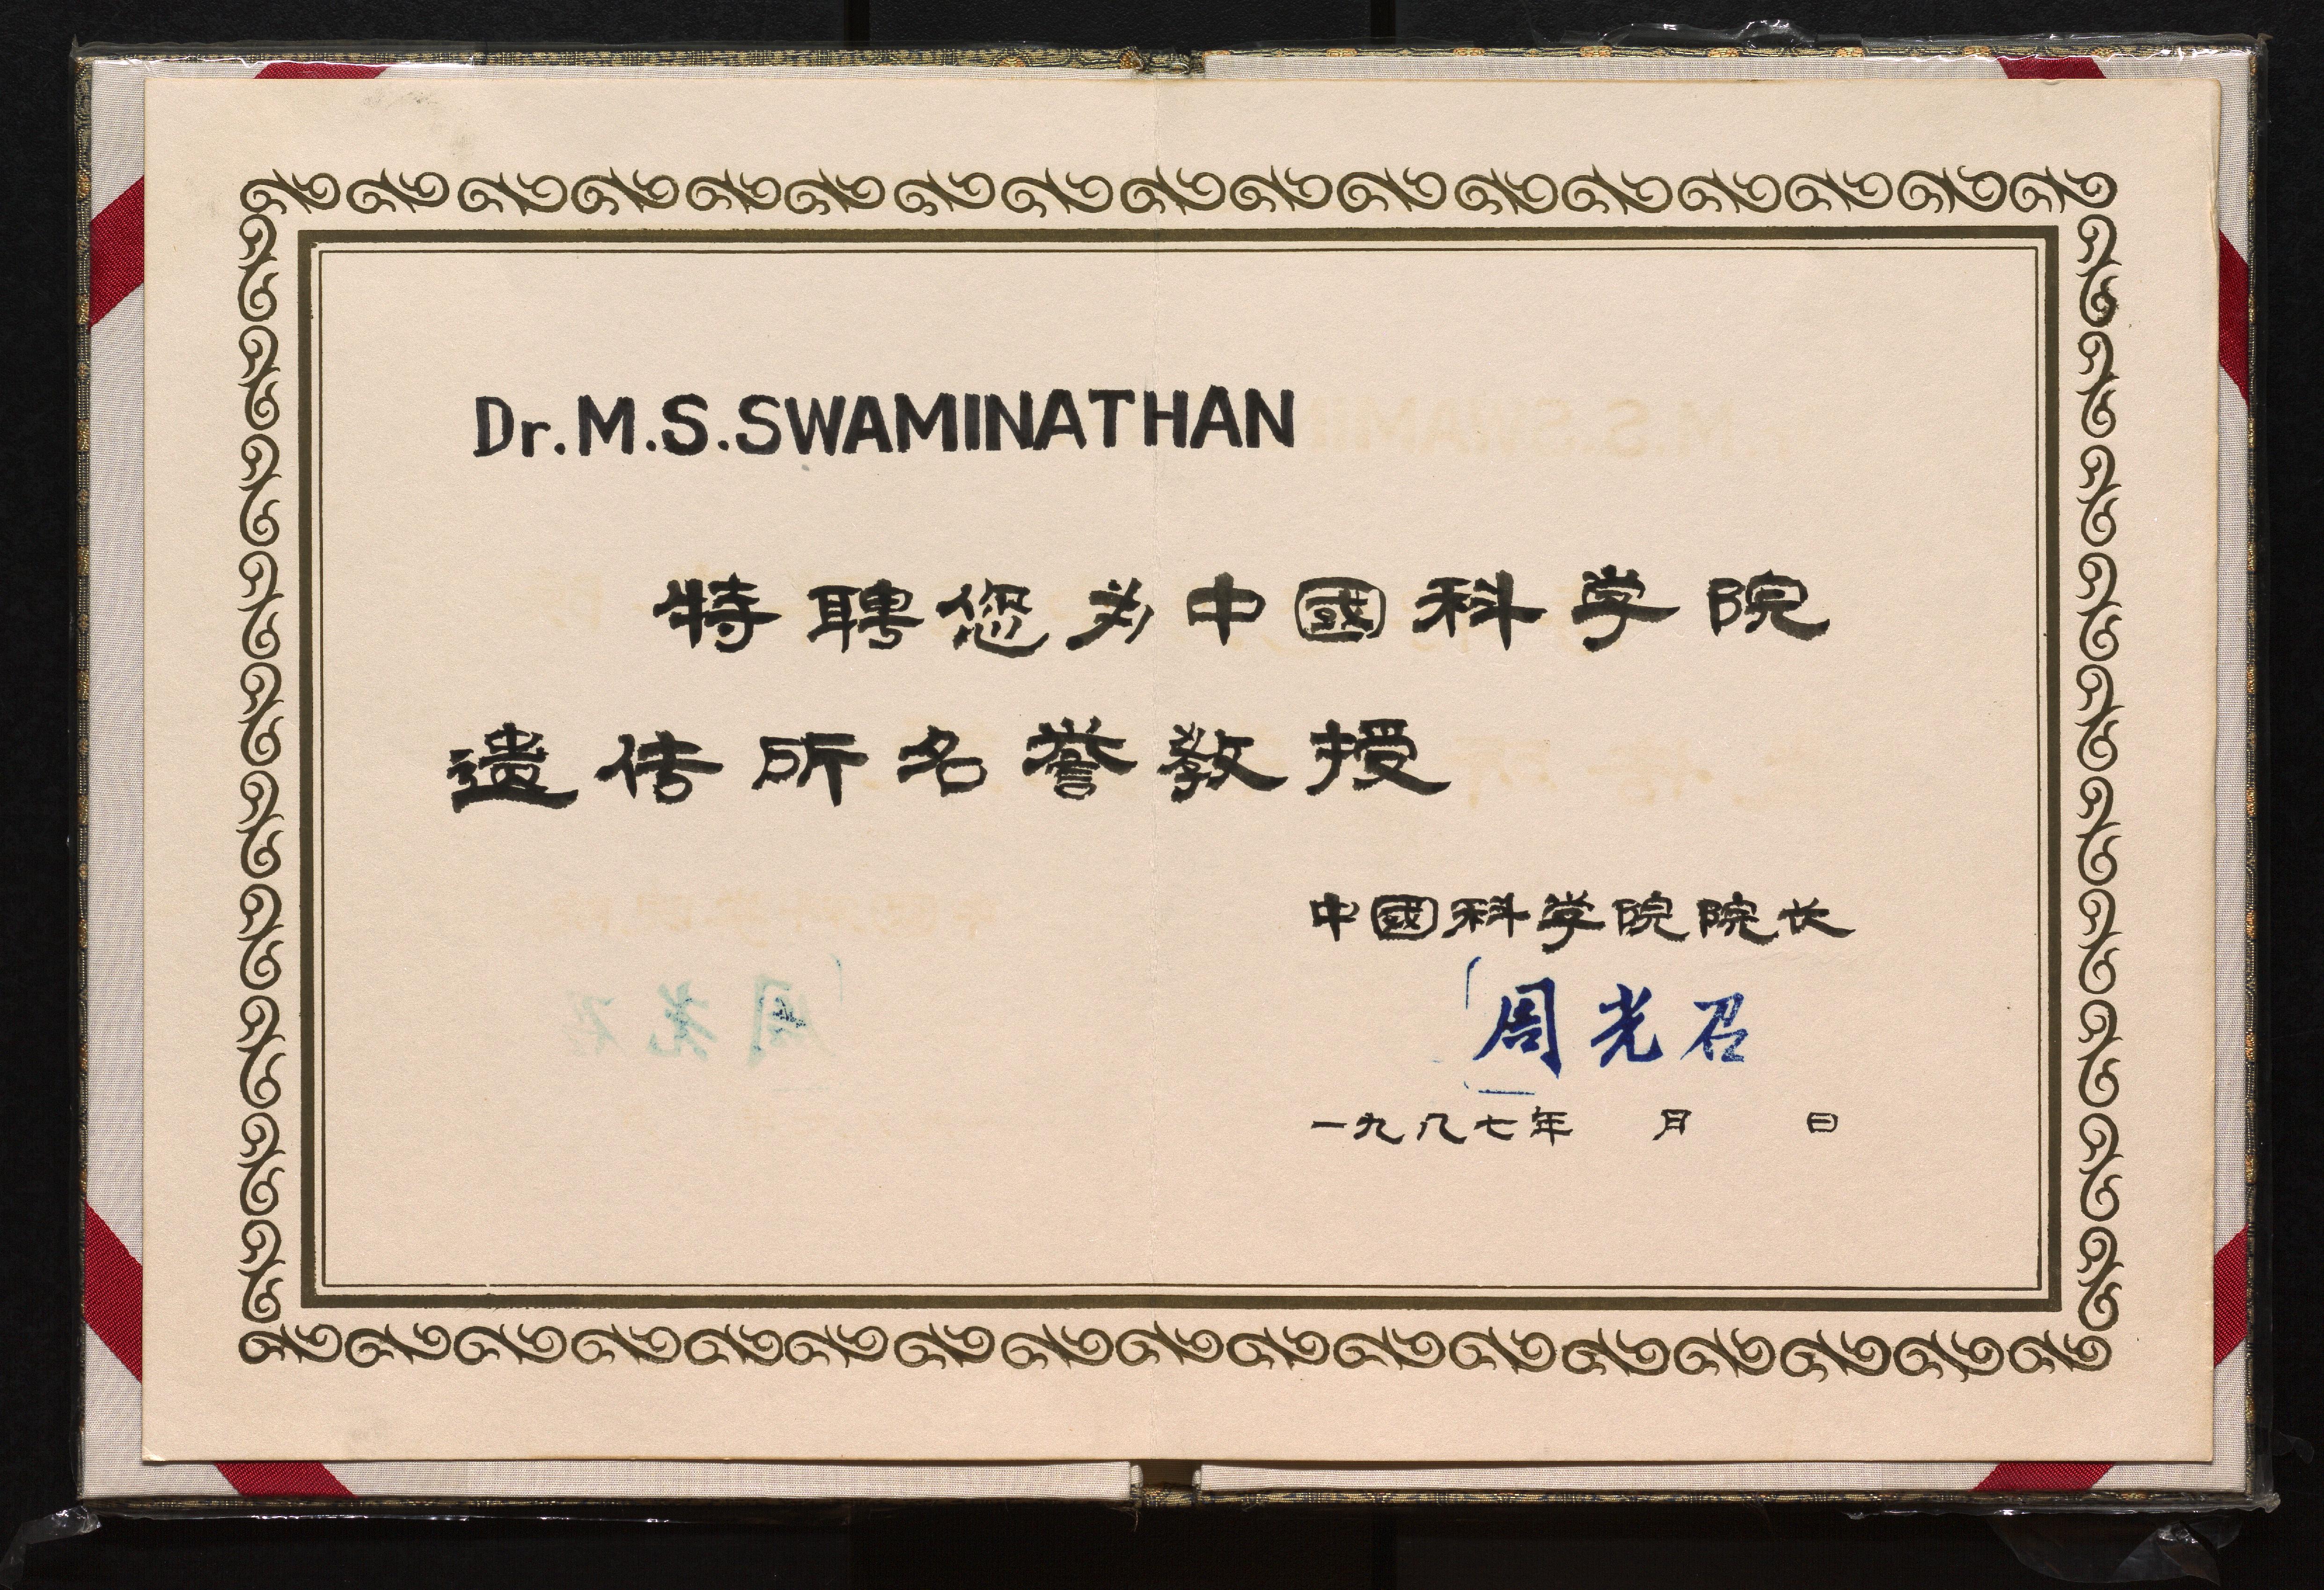 Dr. M.S.SWAMINATHAN
特聘您为中國科学院
遗传所名誉教授
中國科学院院长
周光召
一九八七年 月 日